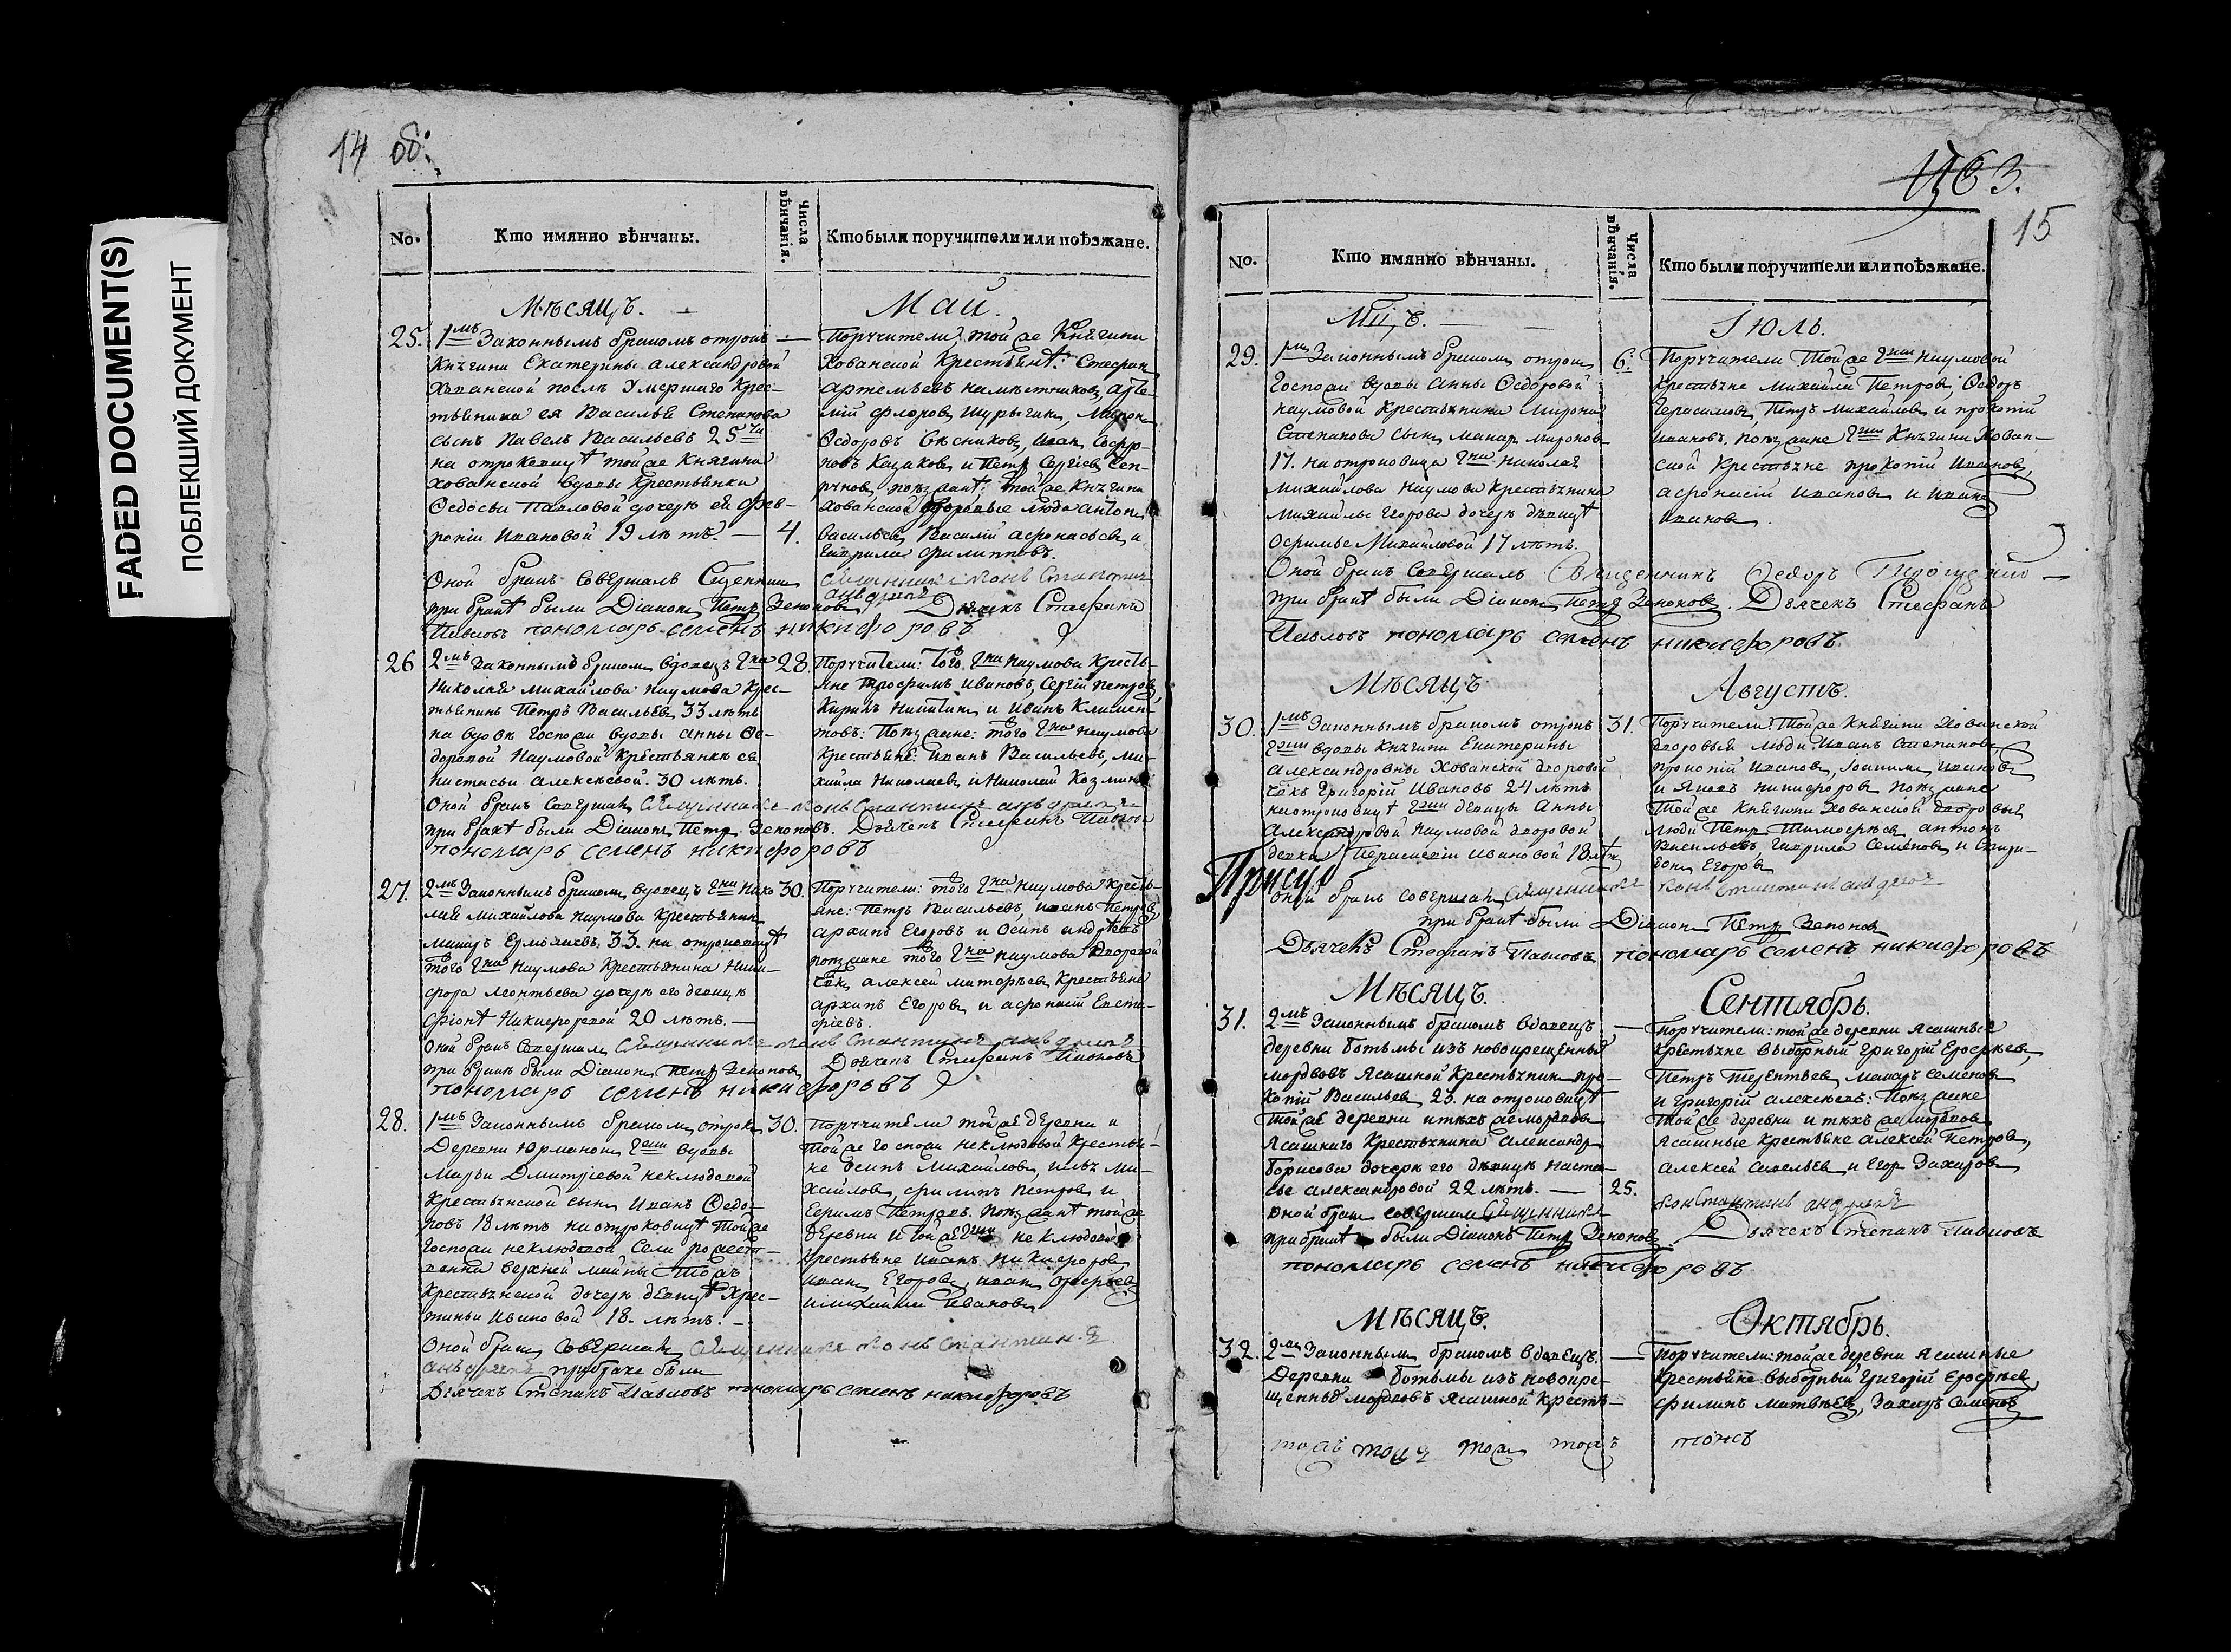 FADED DOCUMENT(S)
ПОБЛЕКШИЙ ДОКУМЕНТ
14 об:
No.
Кто имянно вѣнчаны.
Числа вѣнчанія.
Кто были поручители или поѣзжане.
Мѣсяцъ.
Май.
25.
1мъ Законнымъ бракомъ отрокъ
Княгини Екатерины александровой
Хованской послѣ Умершаго Крес-
тьянина ея Василья Степанова
сынъ Павелъ Васильевъ 25
на отроковицѣ тойже Княгини
хованской вдовы Крестьянки
Ѳедосьи Павловой дочерѣ ей Фев-
роніи Ивановой 19 лѣтъ. —
4.
Поручители: тойже Княгини
Хованской Крестьянѣ: Стефан
артемьевъ намѣстников, арте-
мій флоров Шурыгин, Мирон
Ѳедоровъ Ѳесников, иван Софро-
новъ Казаков и Петр Сергіев Сен-
тойже Княгини
хованской дворовые люди антон
васильев, Василій афонасьев и
Гаврила филипповъ.
Оной бракъ совершалъ Священникъ Константинъ
андреевъ
при бракѣ были Діаконъ Петръ Зеноновъ, Дьячекъ Стефанъ
Павловъ пономарь семенъ никифоровъ
26
2мъ Законнымъ бракомъ вдовецъ Гна
Николая михайлова наумова Крес-
тьянинъ Петръ Васильев 33 лѣтъ
на вдовѣ Госпожи вдовы анны Ѳе-
доровой Наумовой Крестьянкѣ ея
Настасьи алексѣевой. 30 лѣтъ.
28.
Поручители: того Гна наумова Кресть-
яне трофимъ ивановъ, Сергій петров,
Кирилъ Никитин и иванъ Климен-
товъ: Поѣзжане: того Гна наумова
Крестьяне: иванъ Васильевъ, ми-
хайла Николаев и Николай Козмин
Оной бракъ совершалъ Священникъ Константинъ андреевъ
при бракѣ были Діаконъ Петръ Зеноновъ. Дьячекъ Стефанъ Павловъ
пономарь семенъ никифоровъ
27.
2мъ Законнымъ бракомъ вдовецъ Гна Нико
лая михайлова наумова Крестьянин
макаръ Ермолаевъ. 33. на отроковицѣ
того Гна Наумова Крестьянина Ники-
фора леонтьева дочерѣ его девицѣ
Никифоровой 20 лѣтъ. —
30.
Поручители: того Гна наумова Кресть-
яне: Петръ Васильевъ, иванъ Петров,
архипъ Егоровъ и Осипъ андреевъ
поѣзжане того Гна наумова дворовой
алексей матфѣев, Крестьяне
архипъ Егоров и афонасій Евста-
фіевъ.
Оной бракъ совершалъ Священникъ Константинъ андреевъ
при бракѣ были Діаконъ Петръ Зеноновъ Дьячекъ Стефанъ Павловъ
пономарь семенъ никифоровъ
28.
1мъ Законнымъ бракомъ отрокъ
Деревни Юрманки Гжи вдовы
Марьи Дмитріевой неклюдовой
Крестьянской сынъ Иванъ Ѳедо-
ровъ 18 лѣтъ на отроковицѣ тойже
Госпожи неклюдовой Села рожест-
венна верхней майны тожъ
Крестьянской дочерѣ девицѣ Хрес-
тиньи Ивановой 18. лѣтъ. —
30.
Поручители тойже деревни и
тойже Госпожи неклюдовой Крестья-
не осипъ Михайлов, илья ми-
хайлов, филипъ Петров и
Ефимъ Петровъ. Поѣзжанѣ тойже
деревни и тойже Гжи неклюдовой
Крестьяне иванъ Никифоров
иванъ Егоров, иван
и михайла Иванов
Оной бракъ совершалъ Священникъ Константинъ
андреевъ при браке были
Дьячекъ Степанъ Павловъ пономарь семенъ никифоровъ
63.
15
No.
Кто имянно вѣнчаны.
Числа вѣнчанія.
Кто были поручители или поѣзжане.
Мцъ. —
Іюль.
29.
1мъ Законнымъ бракомъ отрок
Госпожи вдовы анны Ѳедоровой
наумовой Крестьянина мирона
Степанова сынъ макар миронов
17. на отроковицѣ Гна николая
михайлова Наумова Крестьянина
михайлы Егорова дочерѣ девицѣ
Михайловой 17 лѣтъ.
6:
Поручители Тойже Гжи наумовой
Крестьяне михайла Петров, Ѳедоръ
Герасимовъ, Петръ михайлов и прокопій
ивановъ. поѣзжане Гжи Княгини Хован-
ской Крестьяне прокопій иванов,
афонасій иванов и иванъ
иванов.
Оной бракъ совершалъ Священникъ Ѳедоръ
при бракѣ были Діаконъ Петръ Зеноновъ. Дьячекъ Стефанъ
Павловъ пономарь семенъ никифоровъ.
Мѣсяцъ
Августъ.
30.
1мъ Законнымъ бракомъ отрокъ
Гжи вдовы Княгини Екатерины
александровны Хованской дворовой
Григорій Ивановъ 24 лѣтъ
на отроковицѣ Гжи девицы Анны
александровой Наумовой дворовой
девки Параскевіи Ивановой 18 лѣтъ
31.
Поручители: Тойже Княгини Хованской
дворовыя люди иванъ Степанов,
прокопій иванов, иванов
и Яковъ никифоров Поѣзжане
Тойже Княгини хованской дворовыя
люди Петръ Тимофѣев, антонъ
Васильевъ, Гаврила Семенов и Спири-
дон Егоров
Оной бракъ совершалъ Священникъ Константинъ андреевъ
при бракѣ были Діаконъ Петръ Зенонов
Дьячекъ Стефанъ Павловъ пономарь семенъ никифоровъ
Мѣсяцъ.
Сентябрь.
31.
2мъ Законнымъ бракомъ вдовецъ
деревни Ботьмы изъ новокрещенныхъ
мордвовъ Ясашной Крестьянин про-
копій Васильев 23. на отроковицѣ
тойже деревни ихъже мордвов
Ясашнаго Крестьянина александра
Борисова дочерѣ его девицѣ Наста-
сье александровой 22 лѣтъ. —
25.
Поручители: тойже деревни ясашные
Крестьяне выборный Григорій Ерофѣев,
Петръ Терентьев, макаръ семенов
и Григорій алексѣевъ: Поѣзжане
тойже деревни и тѣхъ же мордвов
Ясашные Крестьяне алексей Петров,
алексей Савельев и Егор Захаров
Оной бракъ совершалъ Священникъ Константинъ андреевъ
при бракѣ были Діаконъ Петръ Зеноновъ Дьячекъ Степанъ Павловъ
пономарь семенъ никифоровъ
Мѣсяцъ.
Октябрь.
32.
2мъ Законнымъ бракомъ вдовецъ.
Деревни Ботьмы изъ новокре-
щенныхъ мордвовъ Ясашной Кресть-
Поручители: тойже деревни Ясашные
Крестьяне выборный Григорій Ерофѣев,
филипъ матвѣев, Захаръ Семенов